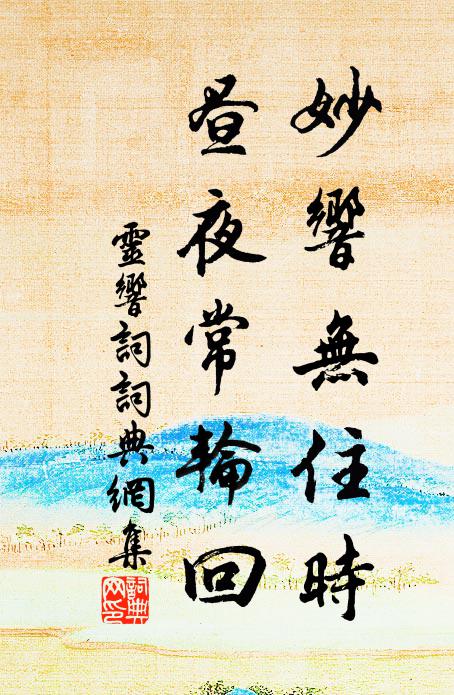 妙響無住時
晝夜常輪回
靈響詞詞典網集
詞典